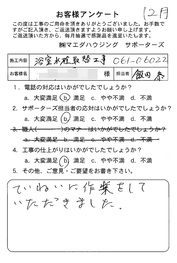 12月
お客様アンケート
この度は工事のご用命を頂きありがとうございました。お手数で
すがご記入頂き、ご返送頂きますようお願い申し上げます。
ご返送頂いた方から、毎月抽選で感謝品を進呈いたします。
㈱マエダハウジング サポーターズ
施工内容 浴室水栓取替工事 061-06022
お客様名 様 担当者 飯田 恭
1. 電話の対応はいかがでしたでしょうか?
a. 大変満足 b. 満足 c. 普通 d. やや不満 e. 不満
2. サポーターズ担当者の応対はいかがでしたでしょうか?
a. 大変満足 b. 満足 c. 普通 d. やや不満 e. 不満
3. 職人( )のマナーはいかがでしたでしょうか?
a. 大変満足 b. 満足 c. 普通 d. やや不満 e. 不満
4. 工事の仕上がりはいかがでしたでしょうか?
a. 大変満足 b. 満足 c. 普通 d. やや不満 e. 不満
5. その他、ご意見・ご要望をお書き下さい。
ていねいに作業をして
いただきました.